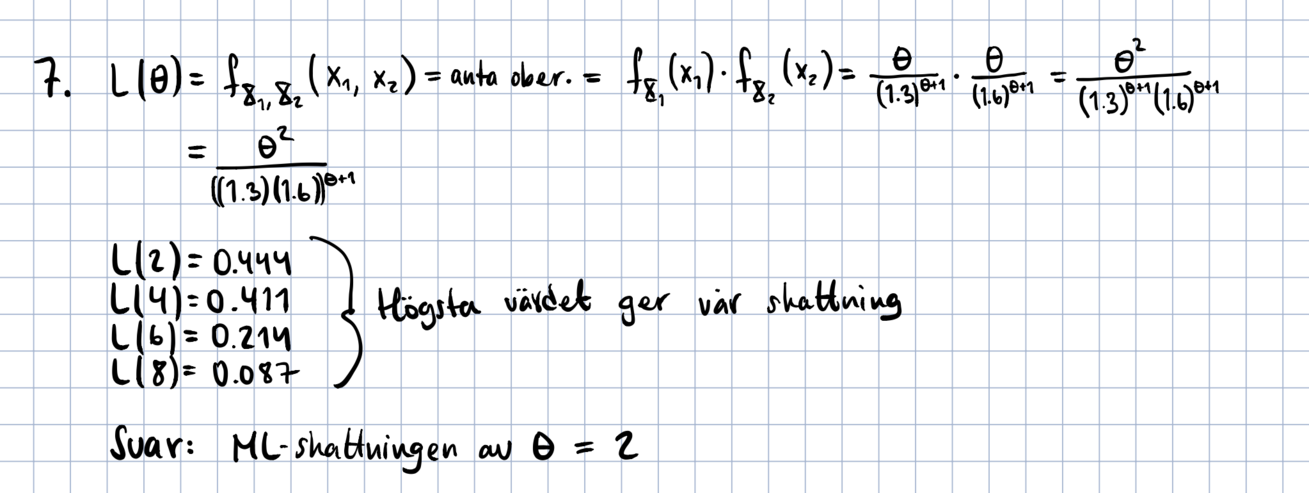 7. L(θ) = f_{X₁,X₂}(x₁, x₂) = anta ober. = f_{X₁}(x₁) · f_{X₂}(x₂) = θ/(1.3)^{θ+1} · θ/(1.6)^{θ+1} = θ²/((1.3)^{θ+1}(1.6)^{θ+1})
= θ²/((1.3)(1.6))^{θ+1}
L(2) = 0.444
L(4) = 0.411
L(6) = 0.214
L(8) = 0.087
Högsta värdet ger vår skattning
Svar: ML-skattningen av θ = 2